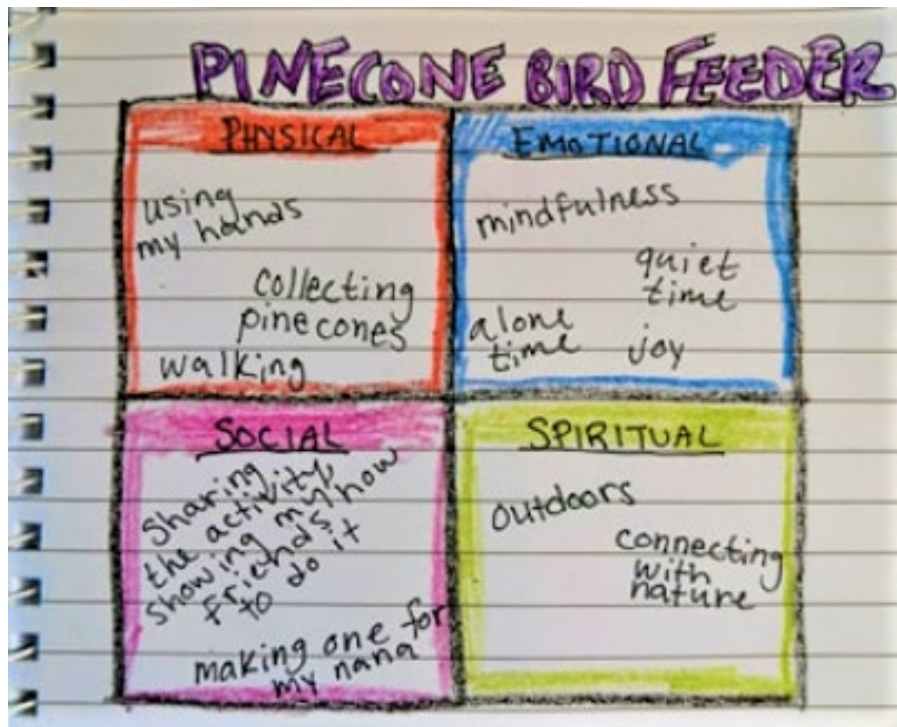 PINECONE BIRD FEEDER
PHYSICAL
using
my hands
collecting
pinecones
walking
EMOTIONAL
mindfulness
quiet
time
alone
time
joy
SOCIAL
Sharing
the activity,
showing my how
friends
to do it
making one for
my nana
SPIRITUAL
outdoors
connecting
with
nature